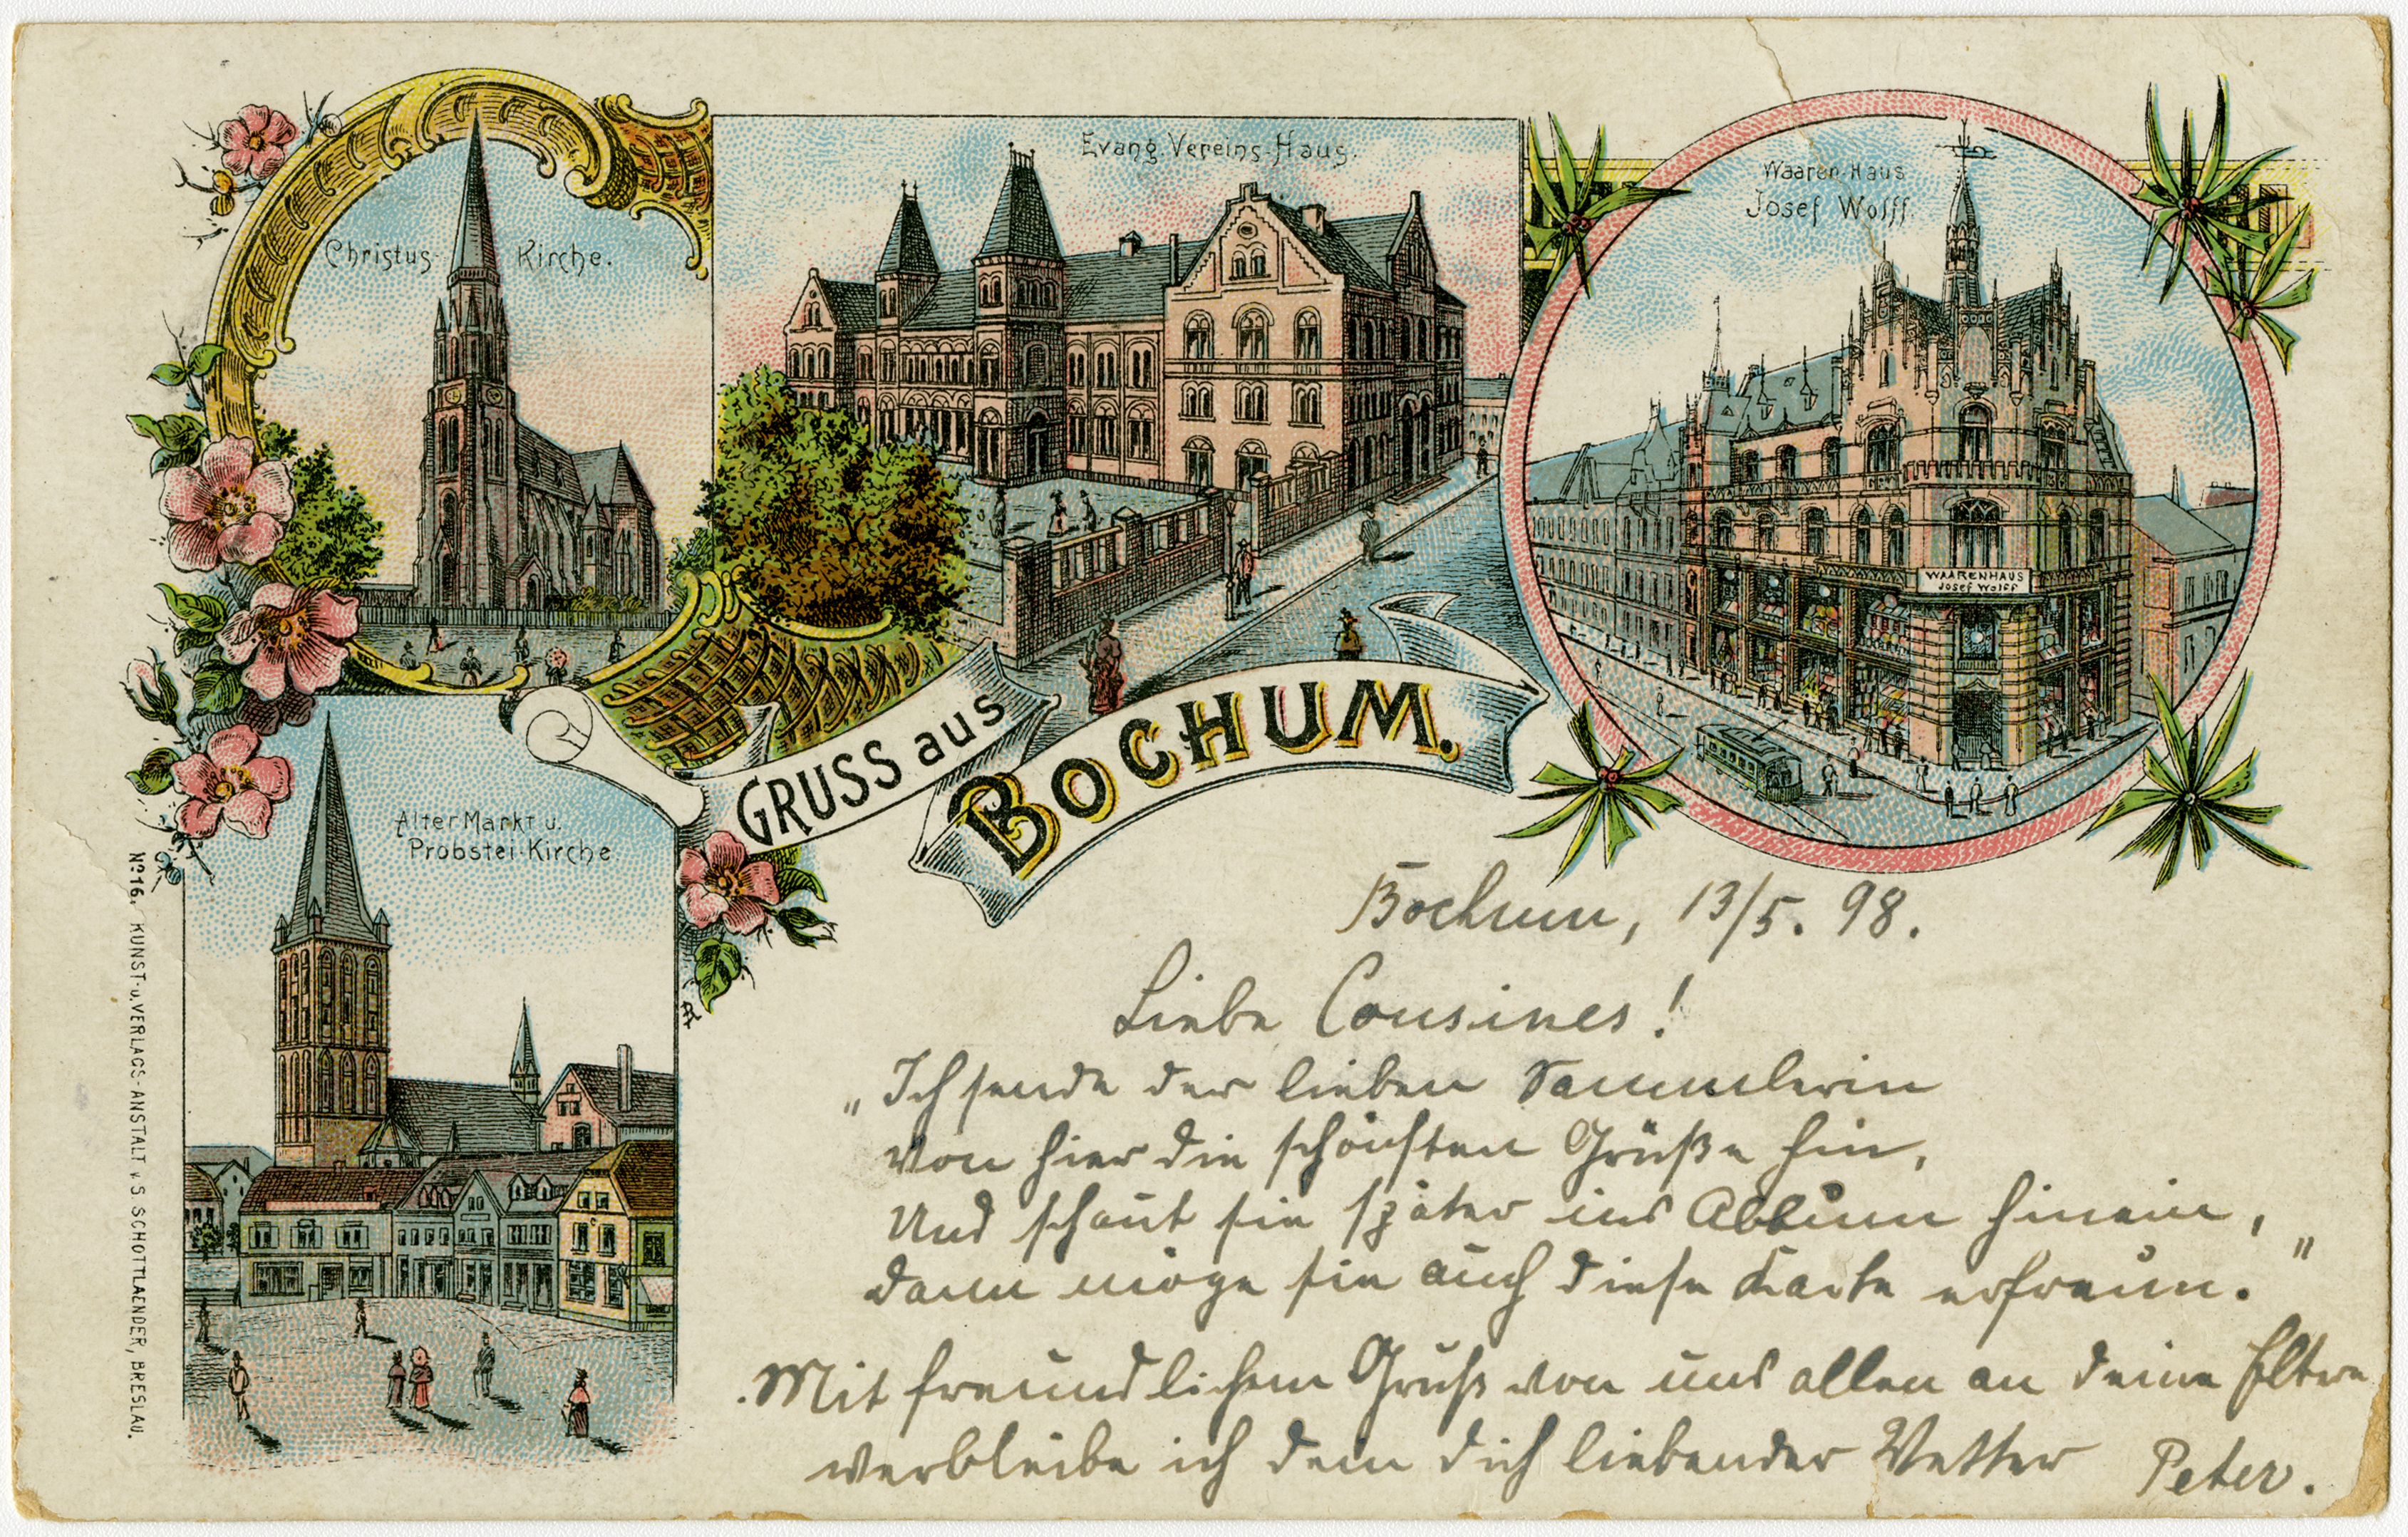 Christus- Kirche.
Evang. Vereins-Haus.
Waaren Haus
Josef Wolff.
WAARENHAUS
Josef Wolff
GRUSS aus
BOCHUM.
Alter Markt u.
Probstei-Kirche.
No 16. KUNST- u. VERLAGS-ANSTALT v. S. SCHOTTLAENDER, BRESLAU.
Bochum, 13/5. 98.
Liebe Cousines!
„Ich sende der lieben Sammlerin
Von hier die schönsten Grüße hin,
Und schaut sie später ins Album hinein,
dann möge sie auch diese Karte erfreun."
Mit freundlichem Gruß von uns allen an deine Eltern
verbleibe ich dein dich liebender Vetter Peter.